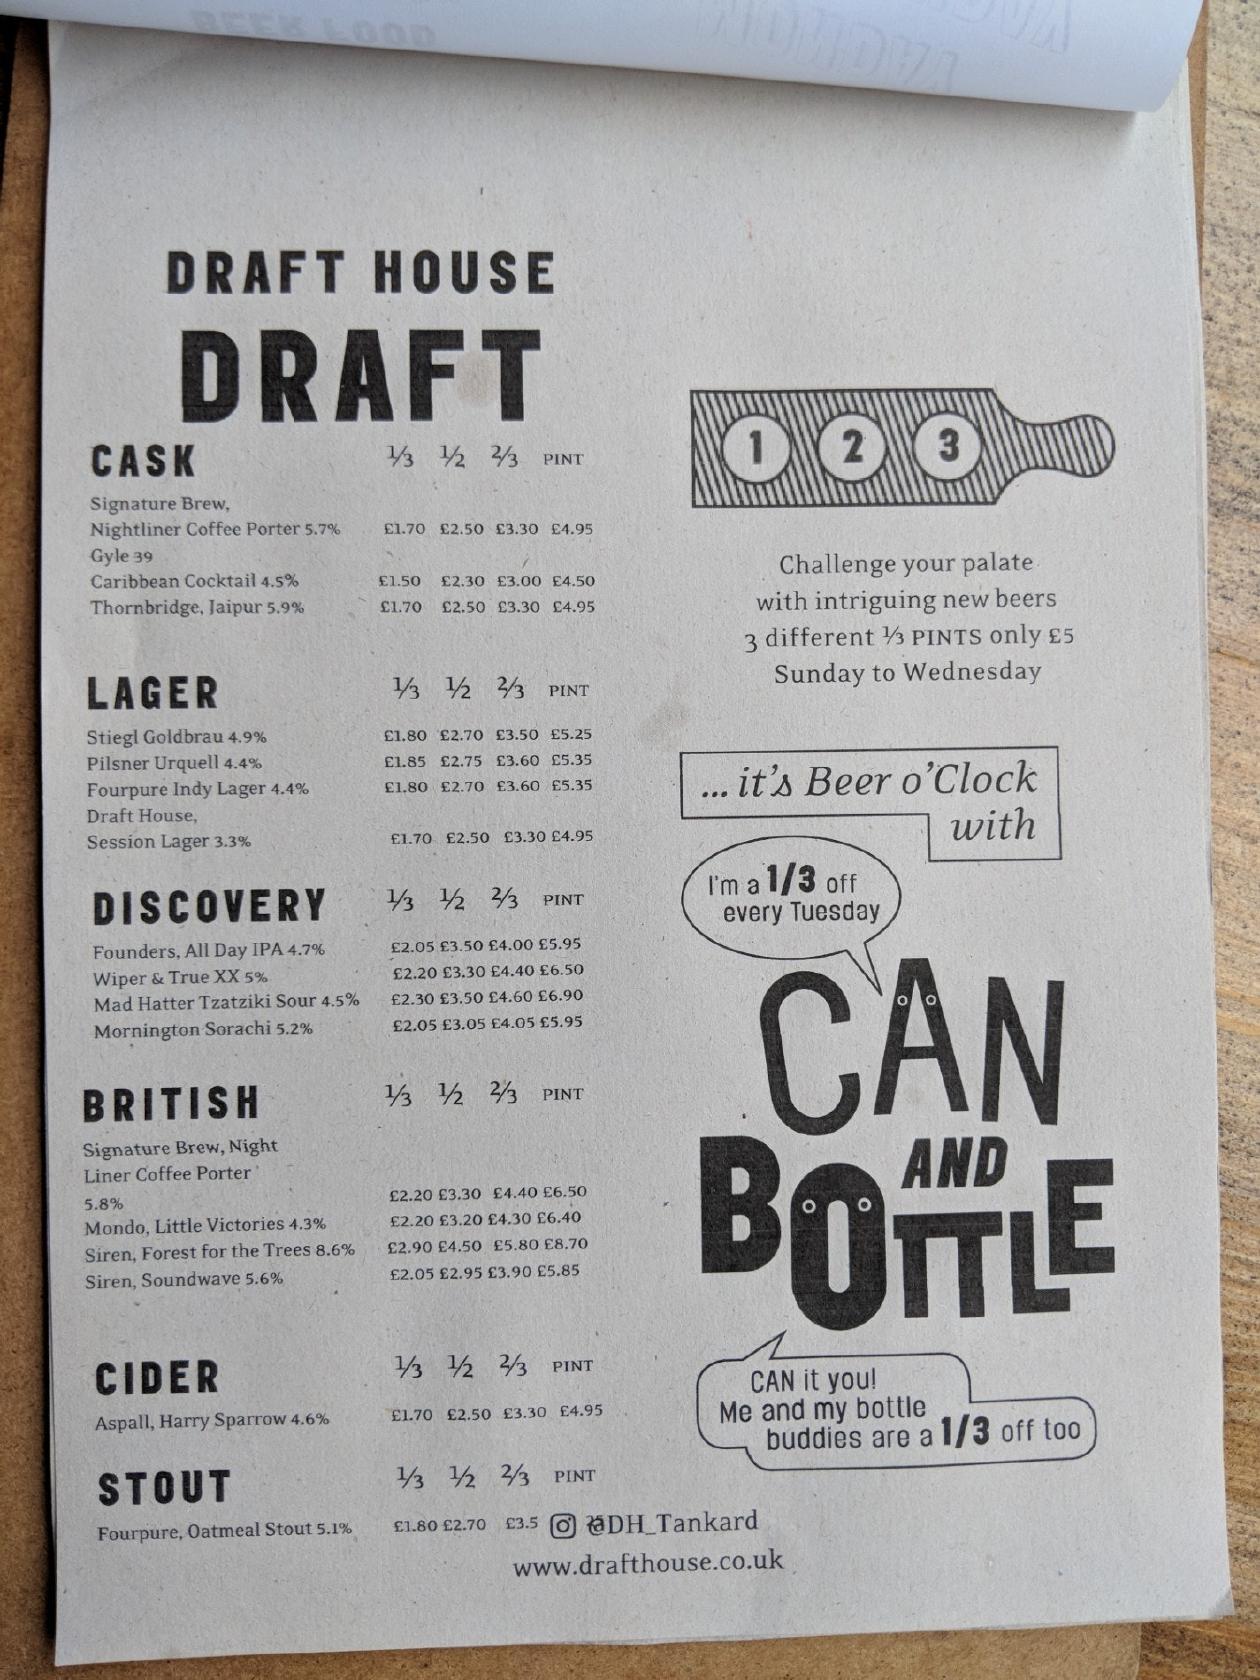 DRAFT HOUSE
DRAFT
CASK ⅓ ½ ⅔ PINT
Signature Brew,
Nightliner Coffee Porter 5.7% £1.70 £2.50 £3.30 £4.95
Gyle 39
Caribbean Cocktail 4.5% £1.50 £2.30 £3.00 £4.50
Thornbridge, Jaipur 5.9% £1.70 £2.50 £3.30 £4.95
LAGER ⅓ ½ ⅔ PINT
Stiegl Goldbrau 4.9% £1.80 £2.70 £3.50 £5.25
Pilsner Urquell 4.4% £1.85 £2.75 £3.60 £5.35
Fourpure Indy Lager 4.4% £1.80 £2.70 £3.60 £5.35
Draft House,
Session Lager 3.3% £1.70 £2.50 £3.30 £4.95
DISCOVERY ⅓ ½ ⅔ PINT
Founders, All Day IPA 4.7% £2.05 £3.50 £4.00 £5.95
Wiper & True XX 5% £2.20 £3.30 £4.40 £6.50
Mad Hatter Tzatziki Sour 4.5% £2.30 £3.50 £4.60 £6.90
Mornington Sorachi 5.2% £2.05 £3.05 £4.05 £5.95
BRITISH ⅓ ½ ⅔ PINT
Signature Brew, Night
Liner Coffee Porter
5.8% £2.20 £3.30 £4.40 £6.50
Mondo, Little Victories 4.3% £2.20 £3.20 £4.30 £6.40
Siren, Forest for the Trees 8.6% £2.90 £4.50 £5.80 £8.70
Siren, Soundwave 5.6% £2.05 £2.95 £3.90 £5.85
CIDER ⅓ ½ ⅔ PINT
Aspall, Harry Sparrow 4.6% £1.70 £2.50 £3.30 £4.95
STOUT ⅓ ½ ⅔ PINT
Fourpure, Oatmeal Stout 5.1% £1.80 £2.70 £3.5
1 2 3
Challenge your palate
with intriguing new beers
3 different ⅓ PINTS only £5
Sunday to Wednesday
... it's Beer o'Clock
with
I'm a 1/3 off
every Tuesday
CAN
AND
BOTTLE
CAN it you!
Me and my bottle
buddies are a 1/3 off too
@DH_Tankard
www.drafthouse.co.uk